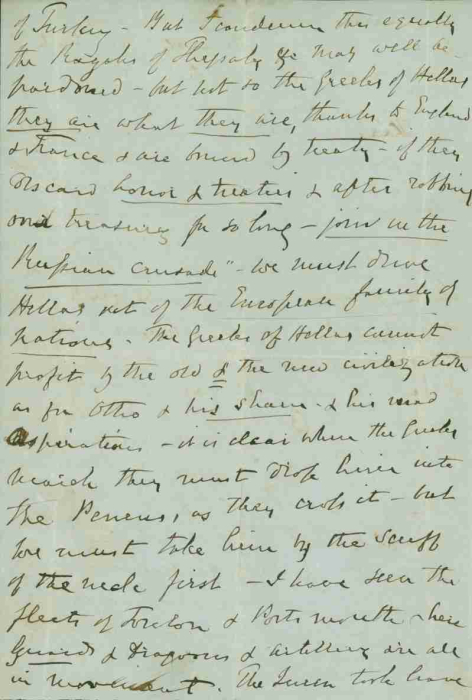 of Turkey - But I condemn this equally
the Rayahs of Thessaly &c may well be
pardoned - but not so the Greeks of Hellas
they are what they are, thanks to England
& France & are bound by treaty - if they
discard honor & treaties & after robbing
our treasuries for so long - join in the
Russian crusade" - we must drive
Hellas out of the European family of
nations. The Greeks of Hellas cannot
profit by the old & the new civilization
as for Otho & his share & his mad
aspirations - it is clear when the Greeks
march they must drop him into
the Peneus, as they cross it - but
we must take him by the scuff
of the neck first - I have seen the
fleets of Toulon & Portsmouth - here
Guards & Dragoons & artillery are all
in movement. The Queen took leave